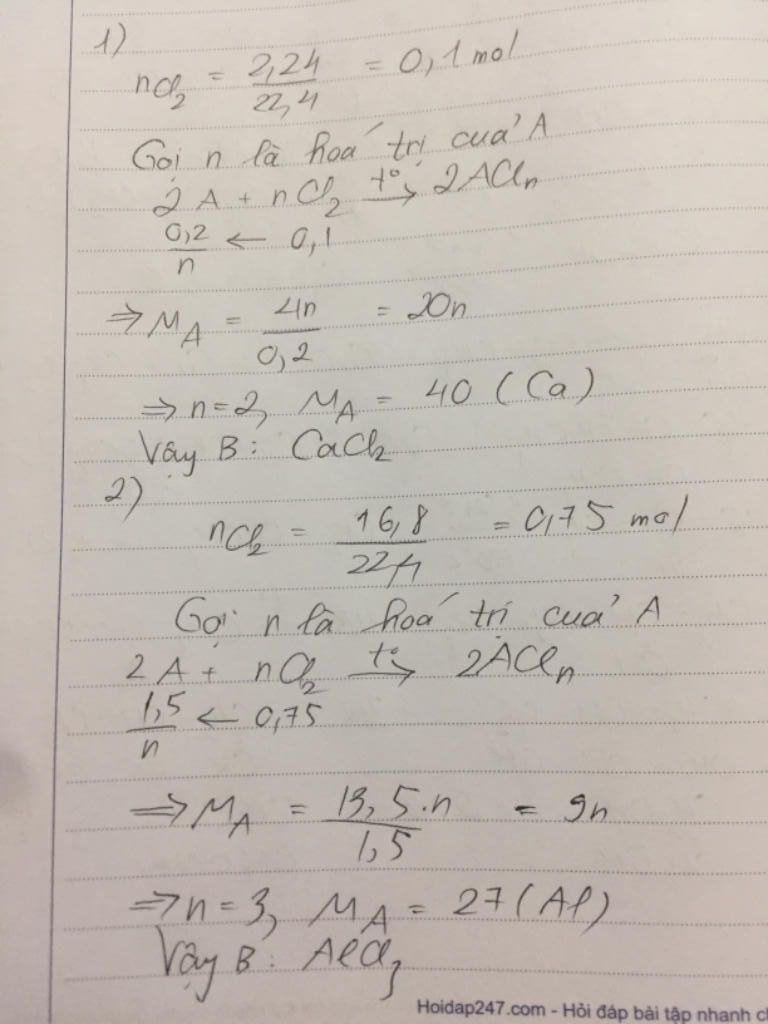 1)
nCl₂ = 2,24/22,4 = 0,1 mol
Gọi n là hoá trị của A
2A + nCl₂ t°→ 2ACln
0,2/n ← 0,1
⇒ MA = 4n/0,2 = 20n
⇒ n=2, MA = 40 (Ca)
Vậy B: CaCl₂
2)
nCl₂ = 16,8/22,4 = 0,75 mol
Gọi n là hoá trị của A
2A + nCl₂ t°→ 2ACln
1,5/n ← 0,75
⇒ MA = 13,5.n/1,5 = 9n
⇒ n=3, MA = 27 (Al)
Vậy B: AlCl₃
Hoidap247.com - Hỏi đáp bài tập nhanh